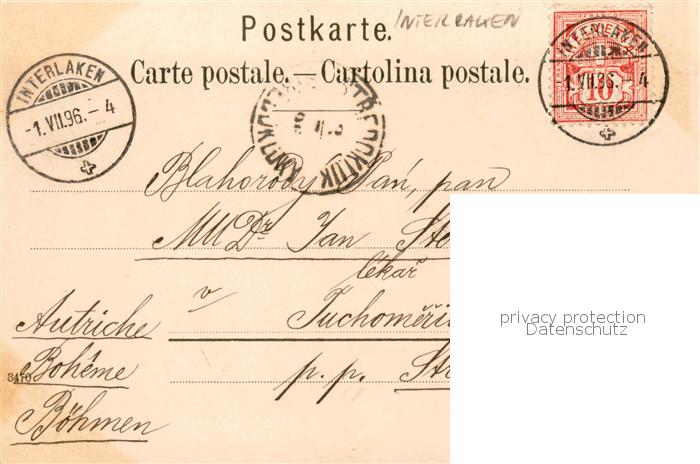 Postkarte. INTERLAKEN
Carte postale. — Cartolina postale.
INTERLAKEN
-1.VII.96.-4
INTERLAKEN
-1.VII.96.-4
10
Blahorodý Pán, pan
MUDr Jan
lékař
v
p. p.
Autriche
Bohême
Böhmen
3470
privacy protection
Datenschutz